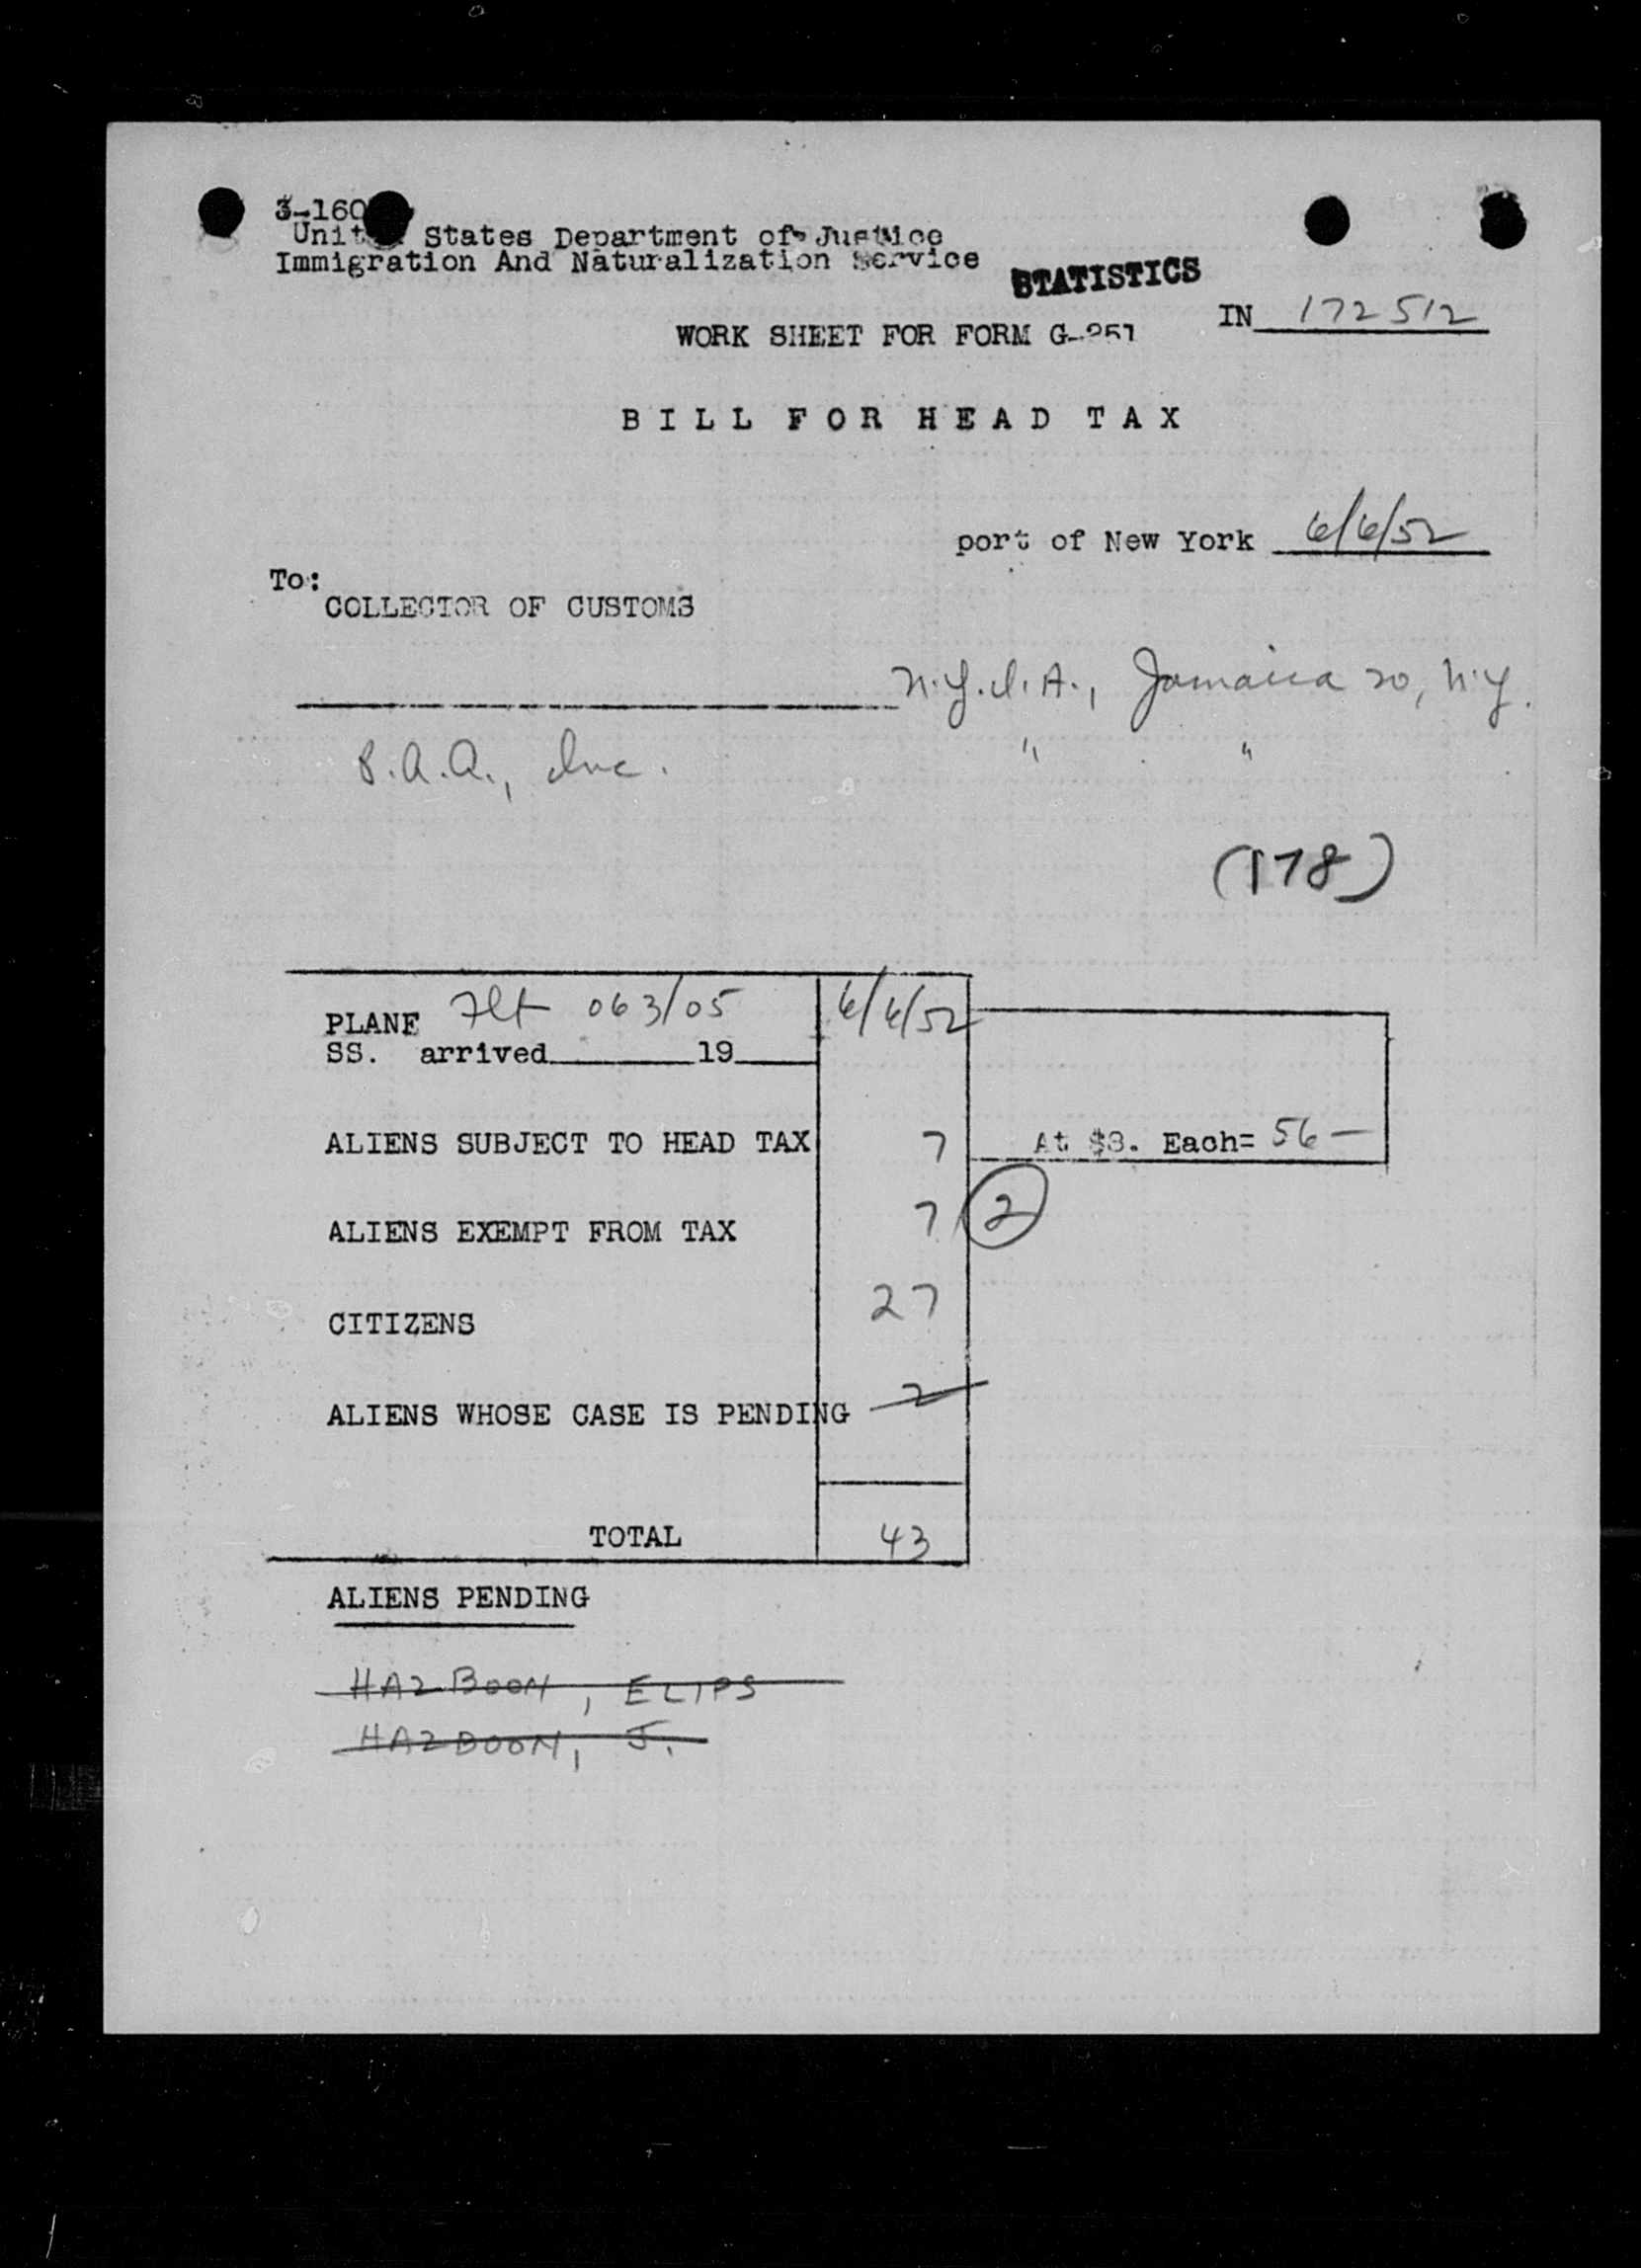 3-160
United States Department of Justice
Immigration And Naturalization Service
STATISTICS
IN 172512
WORK SHEET FOR FORM G-251
BILL FOR HEAD TAX
port of New York 6/6/52
To:
COLLECTOR OF CUSTOMS
N.Y.I.A., Jamaica 20, N.Y.
Inc. " "
(178)
PLANE Flt 063/05 6/6/52
SS. arrived 19
ALIENS SUBJECT TO HEAD TAX 7 At $8. Each= 56 —
ALIENS EXEMPT FROM TAX 7 2
CITIZENS 27
ALIENS WHOSE CASE IS PENDING 2
TOTAL 43
ALIENS PENDING
HAZBOON, ELIPS
HAZBOON, J.